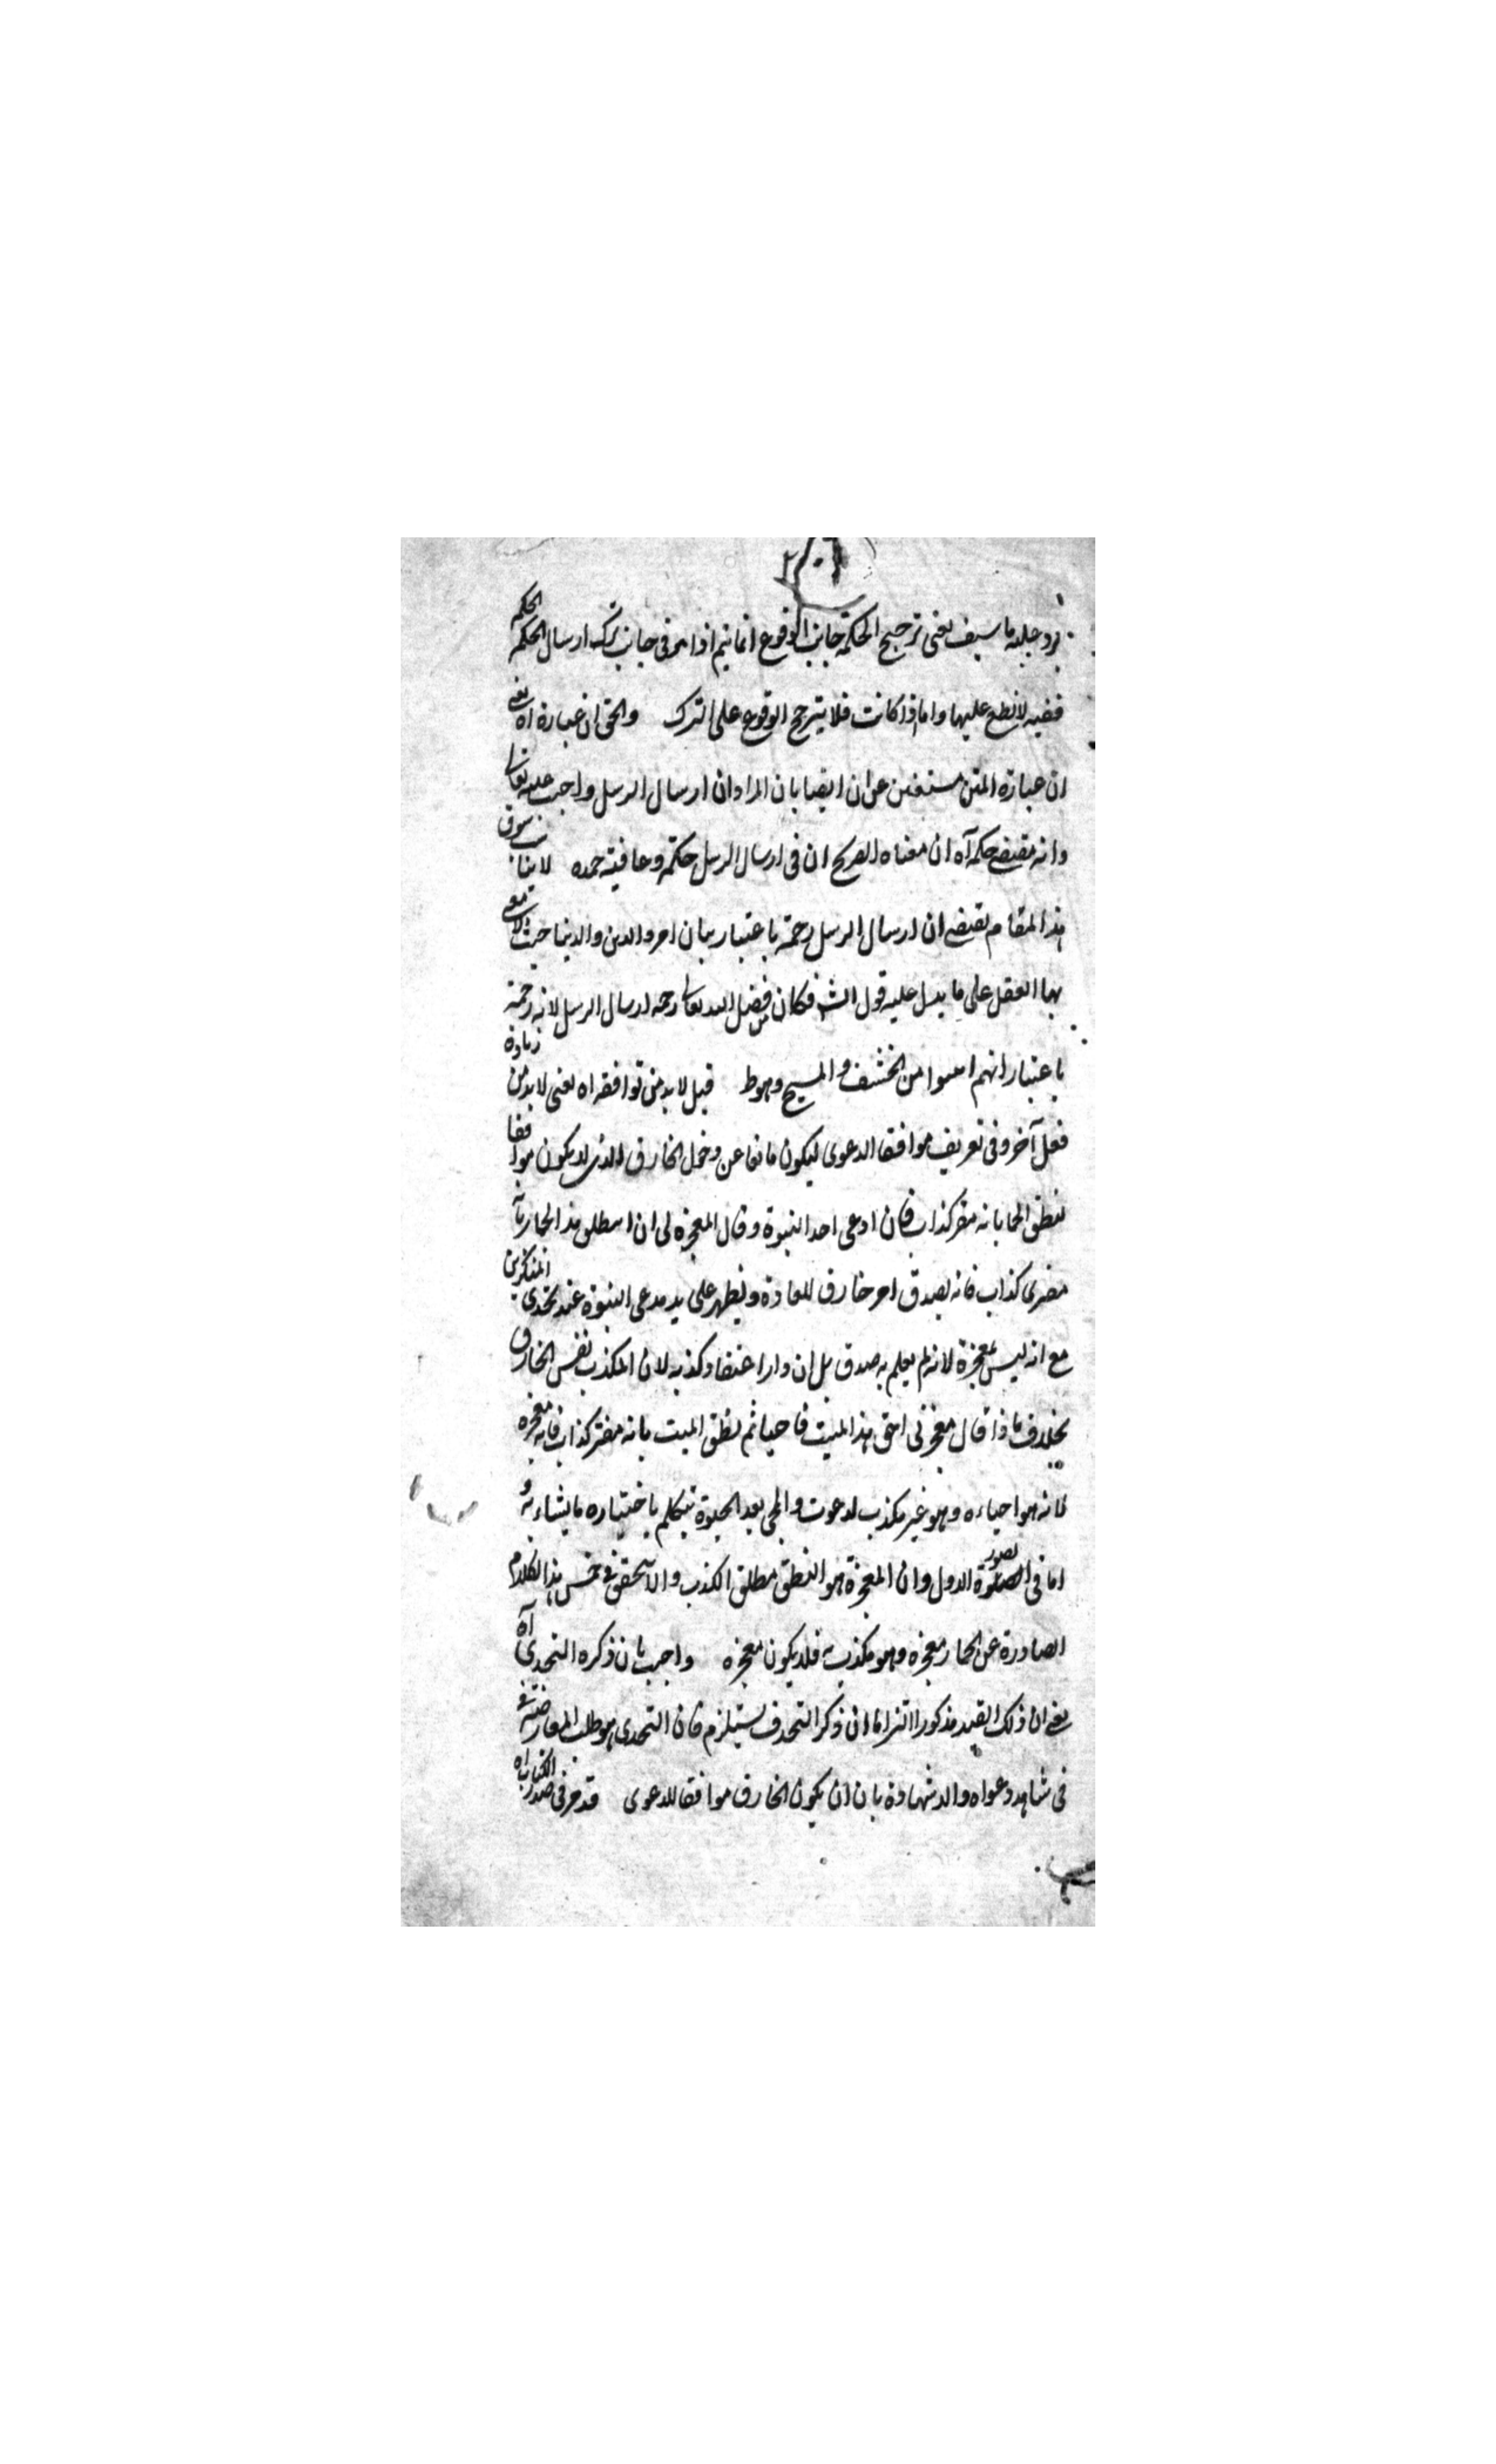 يرد عليه ما سبق يعنى ترجيح الحكمة جانب الوقوع انما يتم اذا لم فى جانب ترك ارسال الحكم الحكمة
ففيه لا نطلع عليها واما اذا كانت فلا يترجح الوقوع على الترك والحق ان عبارة اه يعنى
ان عبارة المتن بان المراد ان ارسال الرسل واجب عليه تعالى
وانه مقتضى حكمه آه ان معناه الصريح ان فى ارسال الرسل حكمة وعاقبة حميدة لا يقال سوق
هذا المقام يقتضى ان ارسال الرسل رحمة باعتبار بيان امر الدين والدنيا حيث لا يفى
بها العقل على ما يدل عليه قول الش فكان من فضل الله تعالى رحمة ارسال الرسل لانه رحمة
باعتبار انهم امنوا من الخسف والمسخ وهو ط قيل لا بد من توافقه اه يعنى لا بد من زيادة
فعل آخر وفى تعريف موافقا الدعوى ليكون مانعا عن دخول الخارق الذى لا يكون موافقا
لنطق الجماد بانه مفتر كذاب فان ادعى احد النبوة وقال المعجزة لى ان انطلق هذا الحمار بانه
مفترى كذاب فانه يصدق امر خارق للعادة ويظهر على يد مدعى النبوة عند تحدى المنكرين
مع انه ليس بمعجزة لانه لم يعلم به صدق بل ازداد اعتقاد كذبه لان المكذب نفس الخارق
بخلاف ما اذا قال معجزتى احيى هذا الميت فاحيا ثم نطق الميت بانه مفتر كذاب فانه معجزة
لانه هو احياءه وهو غير مكذب لدعوته والحى بعد الحيوة يتكلم باختياره ما يشاء و
اما فى الصورة الاول وان المعجزة هو النطق مطلق الكذب ولا يتحقق فى ضمن هذا الكلام
الصادرة عن الحمار معجزة وهو مكذب له فلا يكون معجزة واجيب بان ذكره التحدى آه
يعنى ان ذلك القيد مذكور التزاما ان ذكر التحدى يستلزم فان التحدى هو طلب المعارضة فى
فى شاهد دعواه ولا شهادة بان ان يكون الخارق موافقا للدعوى قد مر فى صدر الكتاب اه